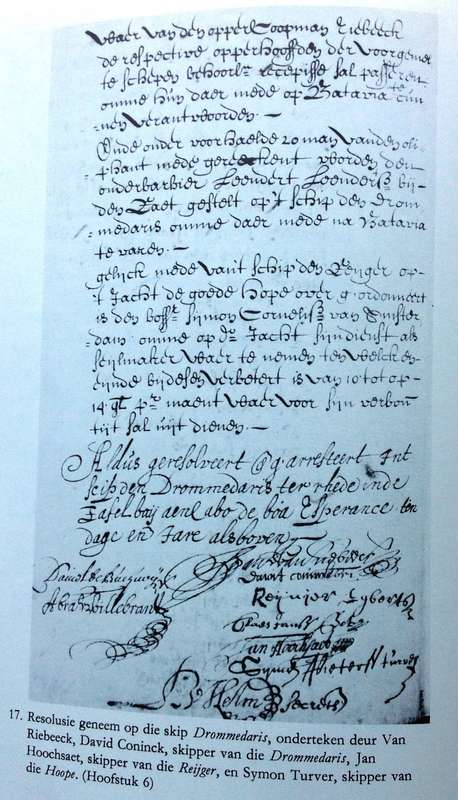 Waer van den opper Coopman Riebeeck
de respective opperhooffden der voorgemelte
te schepen behoorl: recepisse sal passeren
omme hun daer mede op Batavia te cun-
nen verantwoorden. —
Ende onder voorhaelde 20 man vanden oli-
phant mede gereeckent worden den
onderbarbier Leendert Leenderss bij-
den Raet gestelt op't schip den drom-
medaris omme daer mede na Batavia
te varen. —
gelijck mede van't schip den Reijger op-
't Jacht de goede hope over g'ordonneert
is den Sijmon Cornelisz van Amster-
dam omme op Jacht sijn dienst als
seijlmaker waer te nemen ten welcken
eijnde bij desen verbetert is van 10 tot op-
14 gl pr maent waer voor sijn verbon
tijt sal uijt dienen. —
Aldus geresolveert g'arresteert Int
schip den Drommedaris ter rhede inde
Tafelbay aen Cabo de boa Esperance ten
dage en Jare als boven —
Reijnier
17. Resolusie geneem op die skip Drommedaris, onderteken deur Van
Riebeeck, David Coninck, skipper van die Drommedaris, Jan
Hoochsaet, skipper van die Reijger, en Symon Turver, skipper van
die Hoope. (Hoofstuk 6)